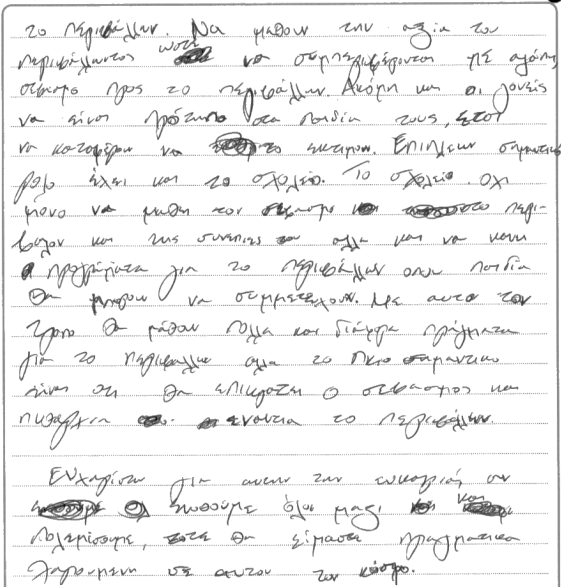 το περιβάλλων. Να μαθουν την αξια του
περιβάλλωντος ωστε να συμπεριφέρονται με αγάπη,
σεβασμο προς το περιβάλλων. Ακόμη και οι γονείς
να είναι πρότυπο στα παιδία τους, ετσι
να καταφέρουν να το εκτιμουν. Επιπλεων σημαντικο
ρολο έχει και το σχολείο. Το σχολείο οχι
μονο να μαθη τον στο περι-
βαλον και της συνεπιες αλλα και να κανη
προγράμματα για το περιβάλλων οπου παιδία
θα μπορουν να συμμετέχουν. Με αυτο τον
τροπο θα μάθουν πολλα και διάφορα πράγματα
για το περιβαλλων αλλα το πιο σημαντικο
είναι οτι θα επικρατει ο σεβασμος και
πιθαρχια εναντια το περιβάλλων.
Ευχαρίστω για αυτην την ευκαιρία, αν
ενωθούμε όλοι μαζι και
πολεμίσουμε, τοτε θα είμαστε πραγματικα
χαρουμενη σε αυτον τον κόσμο.